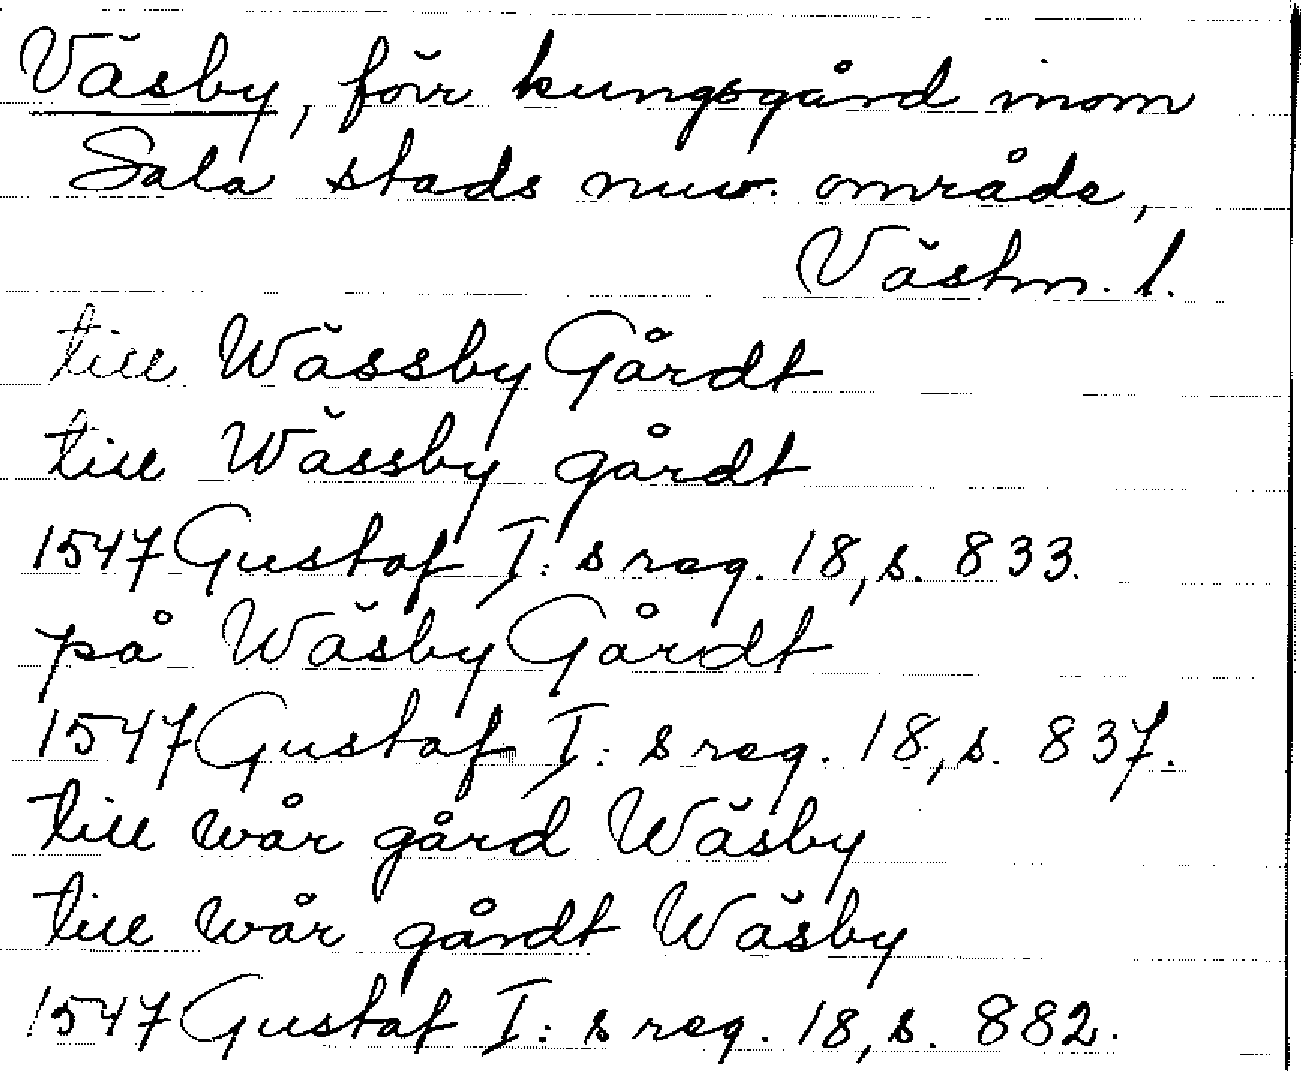 Väsby, förr kungsgård inom
Sala stads nuv. område,
Västm. l.
till Wässby Gårdt
till Wässby gårdt
1547 Gustaf I:s reg. 18, s. 833.
på Wäsby Gårdt
1547 Gustaf I:s reg. 18, s. 837.
till wår gård Wäsby
till wår gårdt Wäsby
1547 Gustaf I:s reg. 18, s. 882.